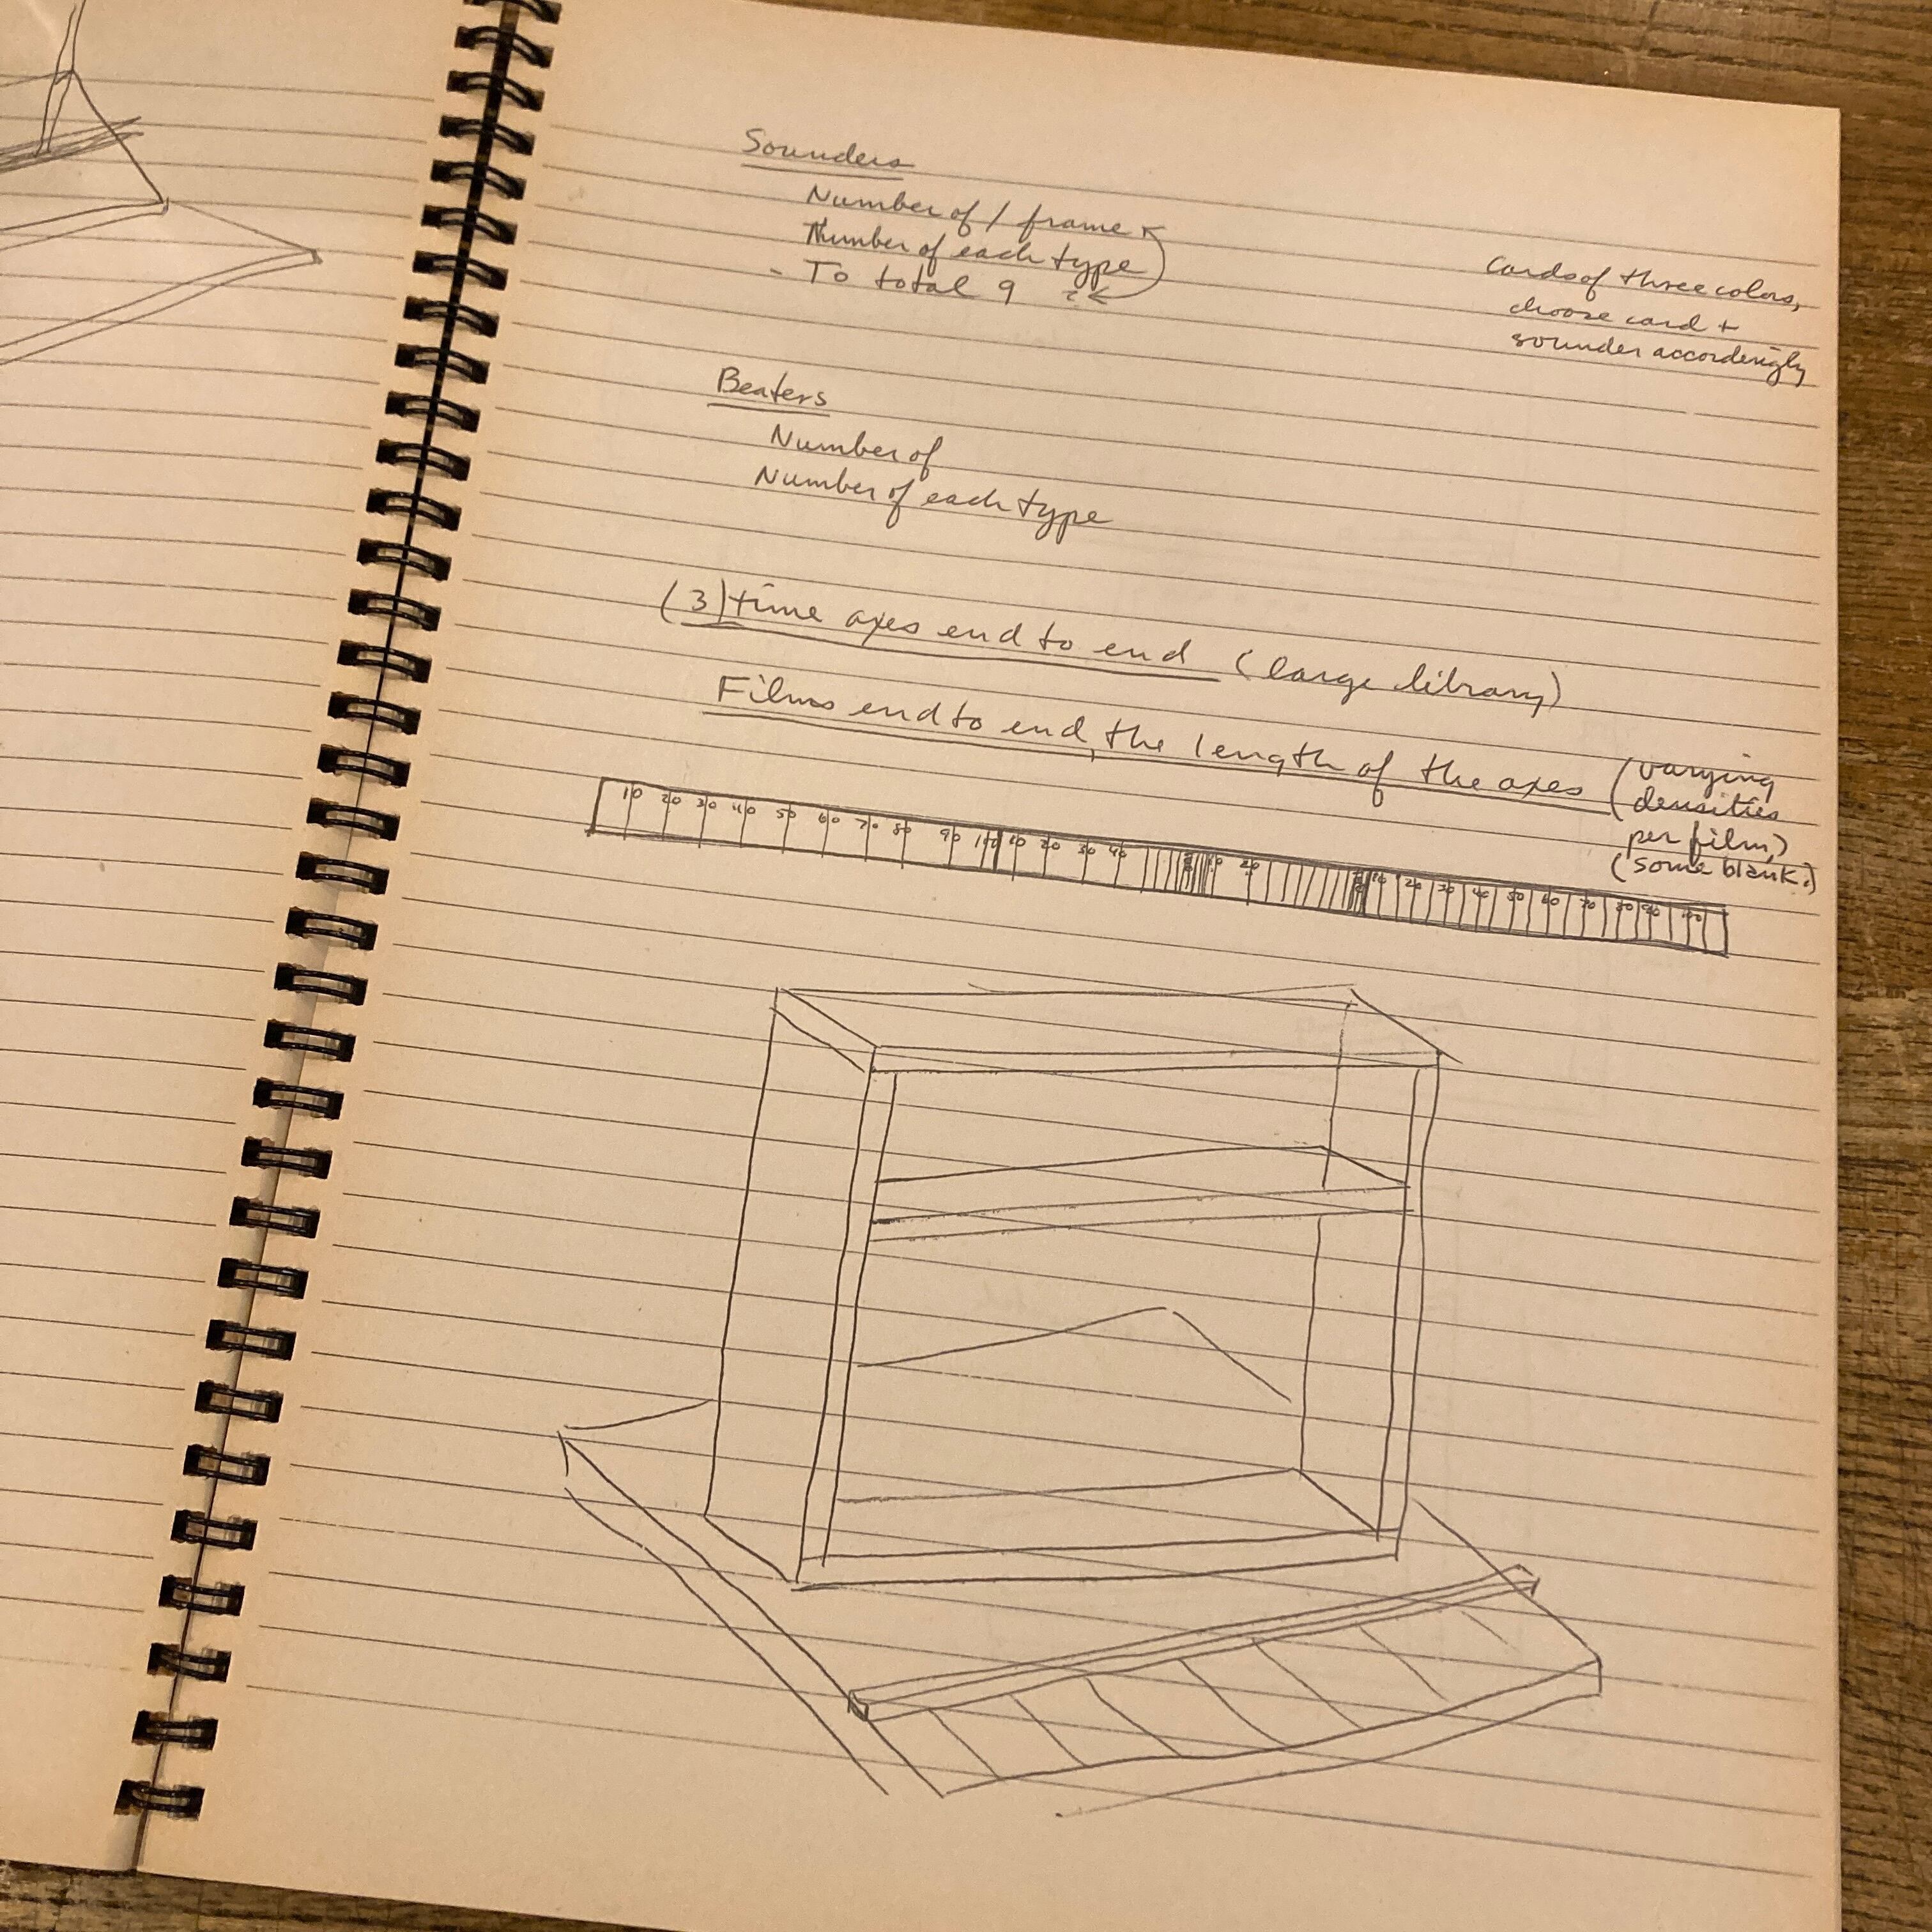 Sounders
Number of / frame
Number of each type
- To total 9 ?
Cards of three colors,
choose card +
sounder accordingly
Beaters
Number of
Number of each type
(3) time axes end to end (large library)
Films end to end, the length of the axes (varying
densities
per film,)
(some blank.)
10 20 30 40 50 60 70 80 90 100 10 20 30 40 10 20 10 20 30 40 50 60 70 80 90 100